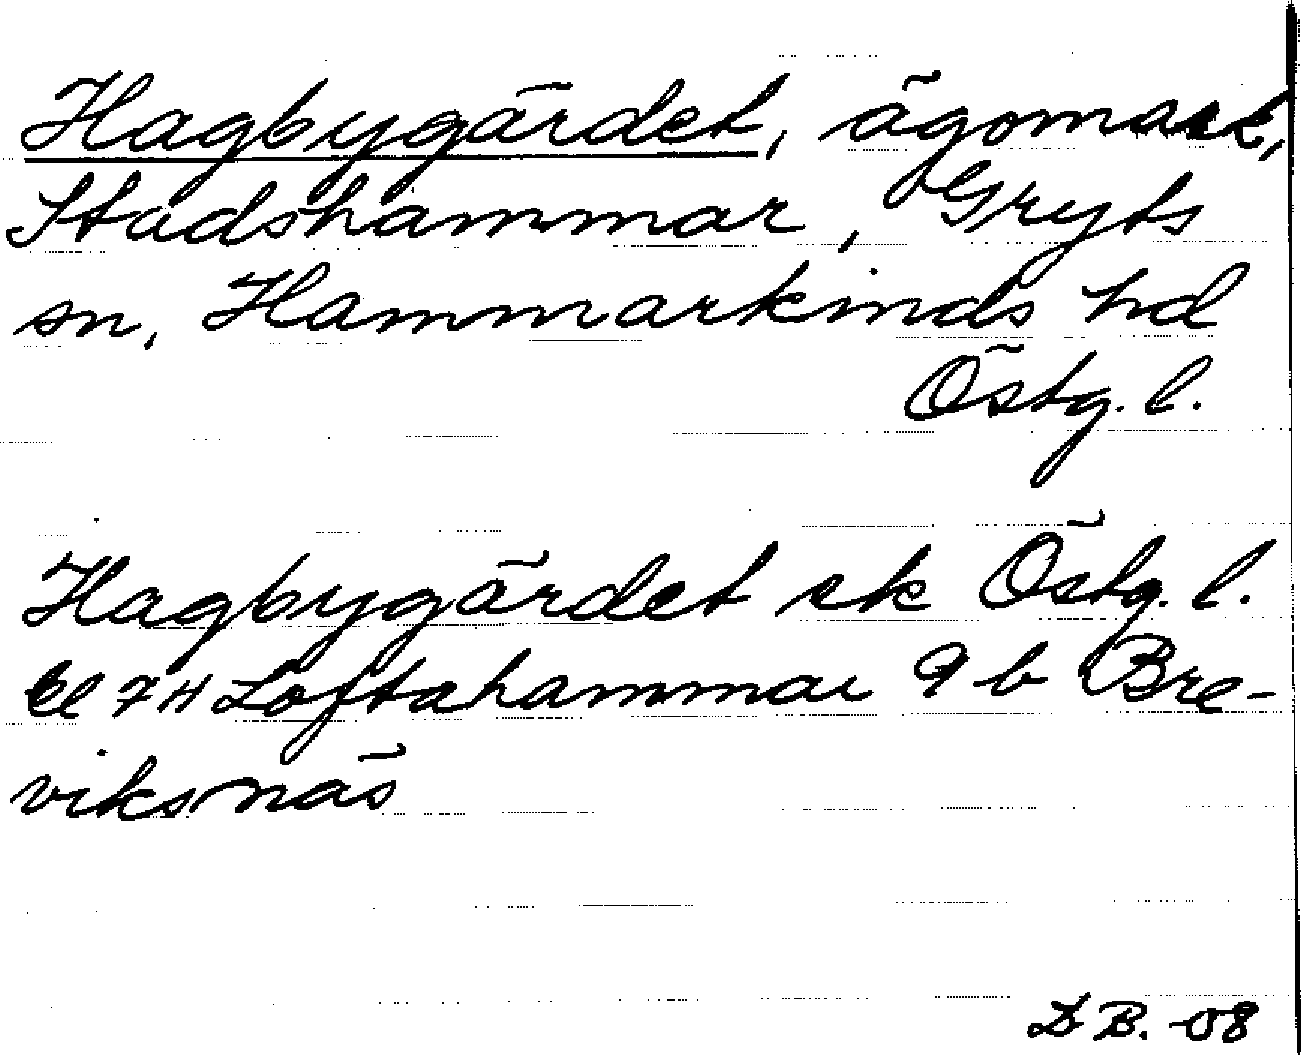 Hagbygärdet, ägomark,
Stadshammar, Gryts
sn, Hammarkinds hd
Östg. l.
Hagbygärdet ek Östg. l.
bl 7H Loftahammar 9 b Bre-
viksnäs
D B. -08